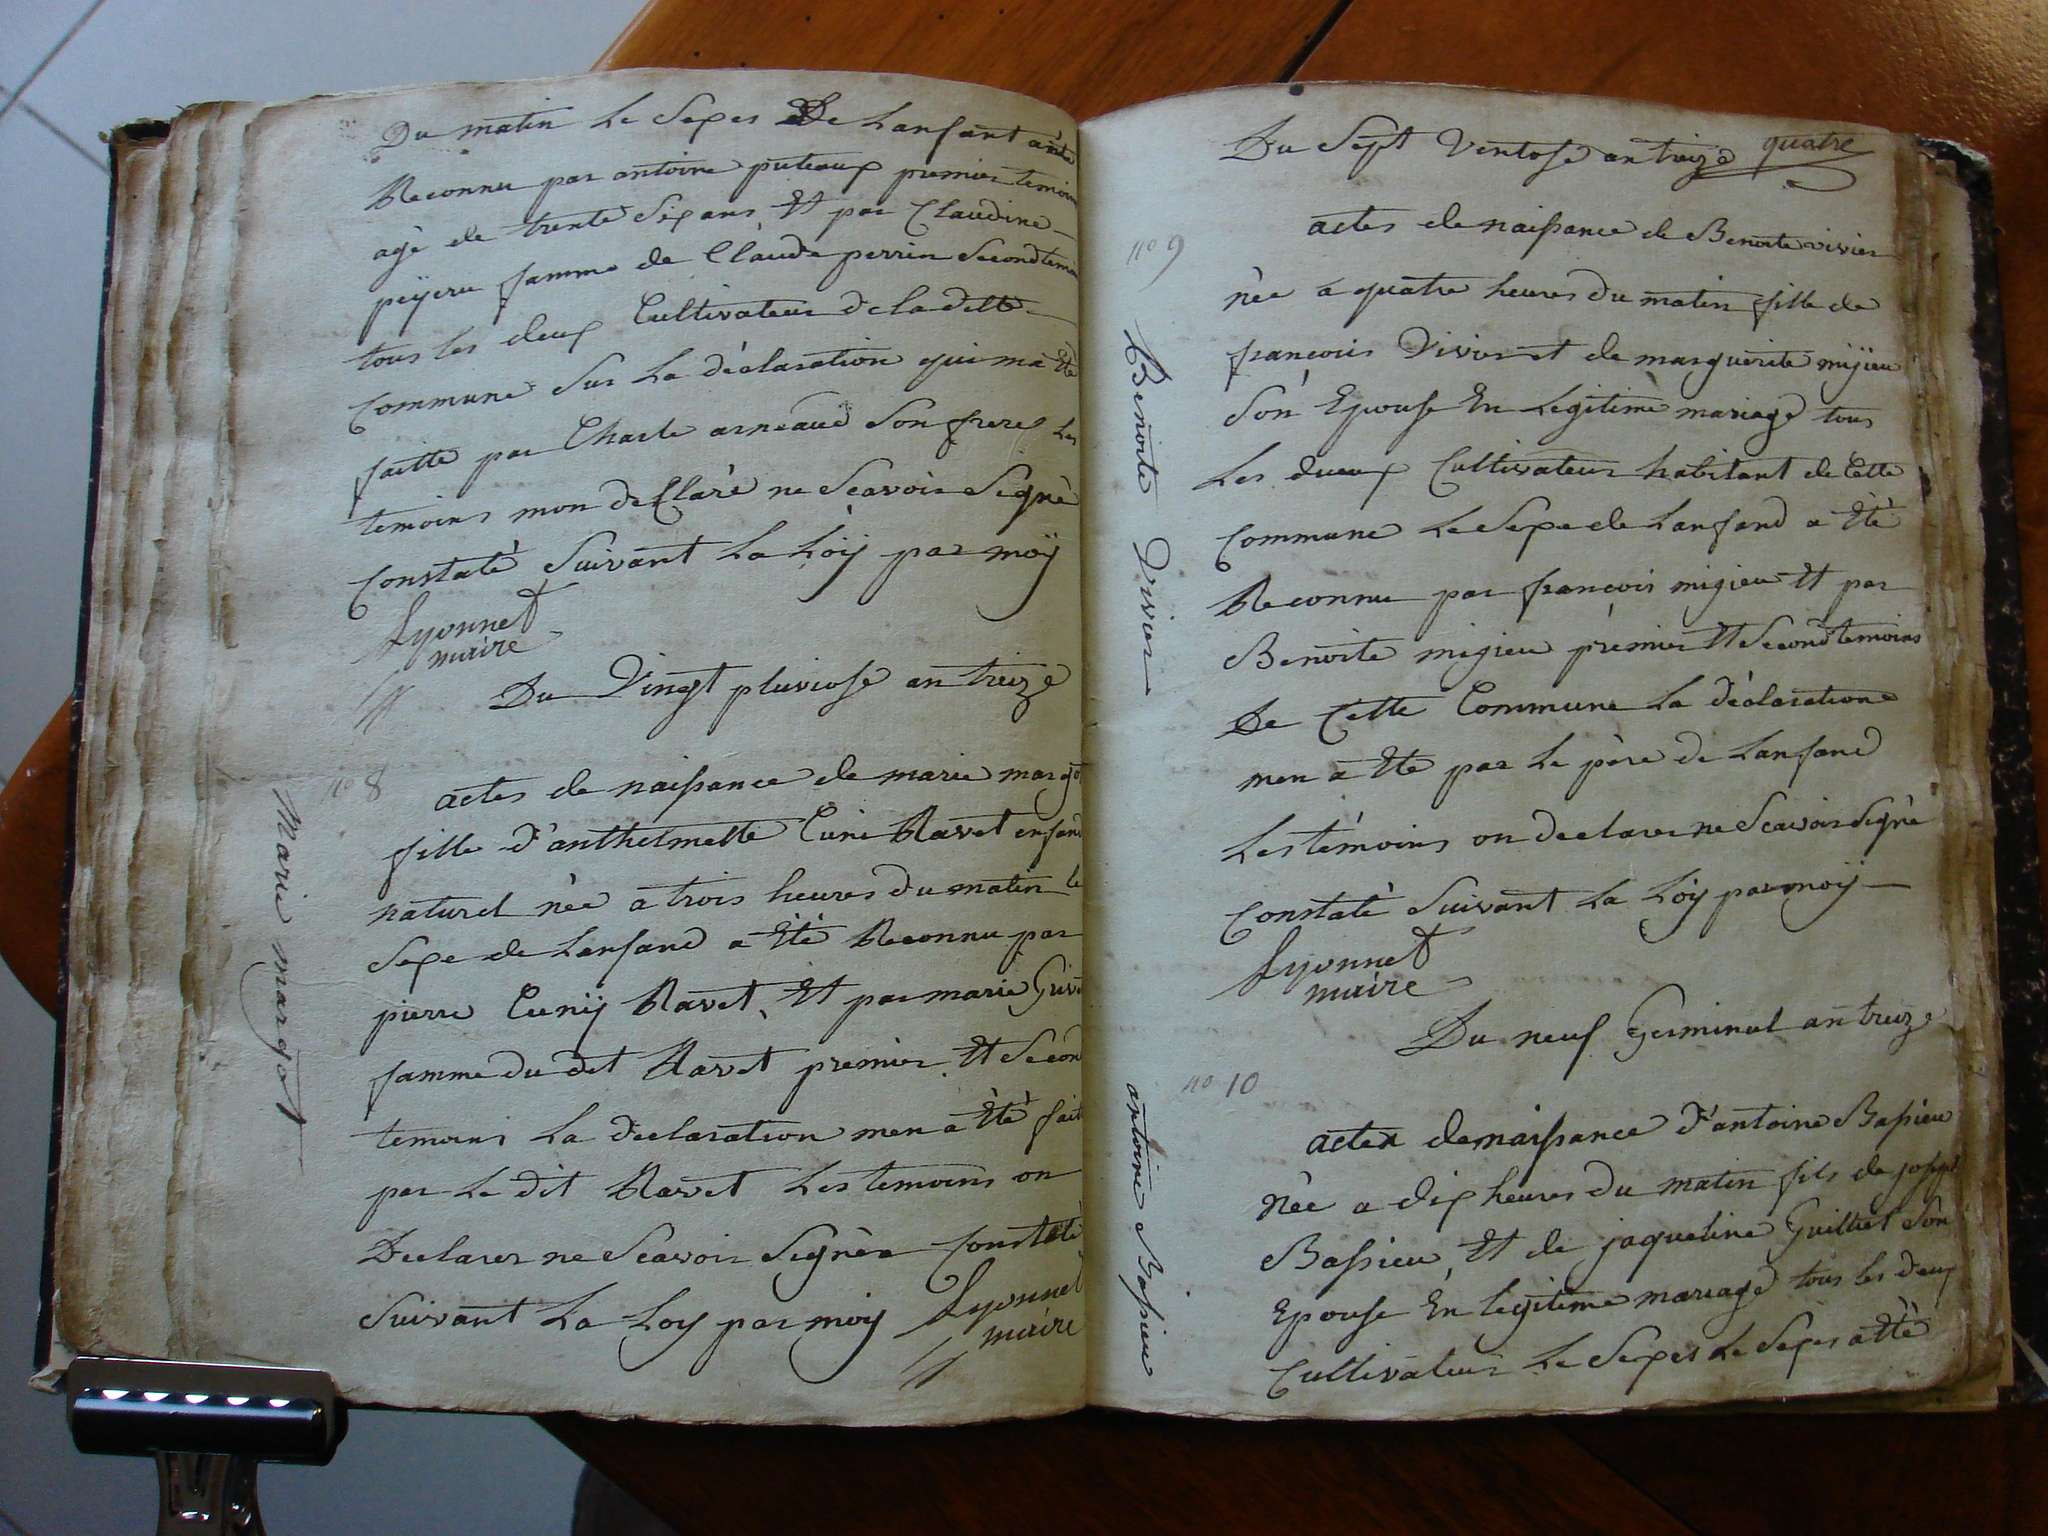 Du matin Le Sexes De Lanfant a ète
Reconnu par antoine puteaux premier temoins
agè de trente Six ans Et par Claudine
peÿeru famme de Claude perrin Second temoin
tous les deux Cultivateur De La ditte
Commune Sur La dèclaration qui ma Ete
faitte par Charle arneaud Son frere Les
temoins mon deClarè ne Scavoir Signè
Constatè Suivant La Loÿ par moÿ
Lyonnet
maire
Du Vingt pluviose an treize
no 8
Marie margot
actes de naissance de marie margot
fille d'anthelmette Cuni Ravet enfant
naturel nèe a trois heures du matin le
Sexe de Lenfand a Eté Reconnu par
pierre Cuniÿ Ravet, Et par marie
famme du dit Ravet premier Et Second
temoins La declaration men a Etè fait
par Le dit Ravet Les temoins on
Declarer ne Scavoir Signèr Constatè
Suivant La Loy par moy Lyonnet
maire
Du Sept Ventose an treize quatre
no 9
Benoite Vivier
actes de naissance de Benoite vivier
nèe a quatre heures du matin fille de
francois Vivier et de marguerite mijieu
Son Epouse En Legitime mariage tous
Les deux Cultivateur habitant de Cette
Commune Le Sexe de Lanfand a Etè
Reconnu par françois migieu Et par
Benoite migieu premier Et Second temoins
De Cette Commune La dèclaration
men a Ete par Le père de Lanfand
Les tèmoins on declarer ne Scavoir Signè
Constatè Suivant La Loÿ par moÿ
Lyonnet
maire
Du neuf Germinal an treize
no 10
antoine Bassieu
actes de naissance d'antoine Bassieu
Nèe a dix heures du matin fils de joseph
Bassieu, Et de jaqueline Guilliet Son
Epouse En legitime mariage tous les deux
Cultivateur Le Sexes Le Sexes a Etè